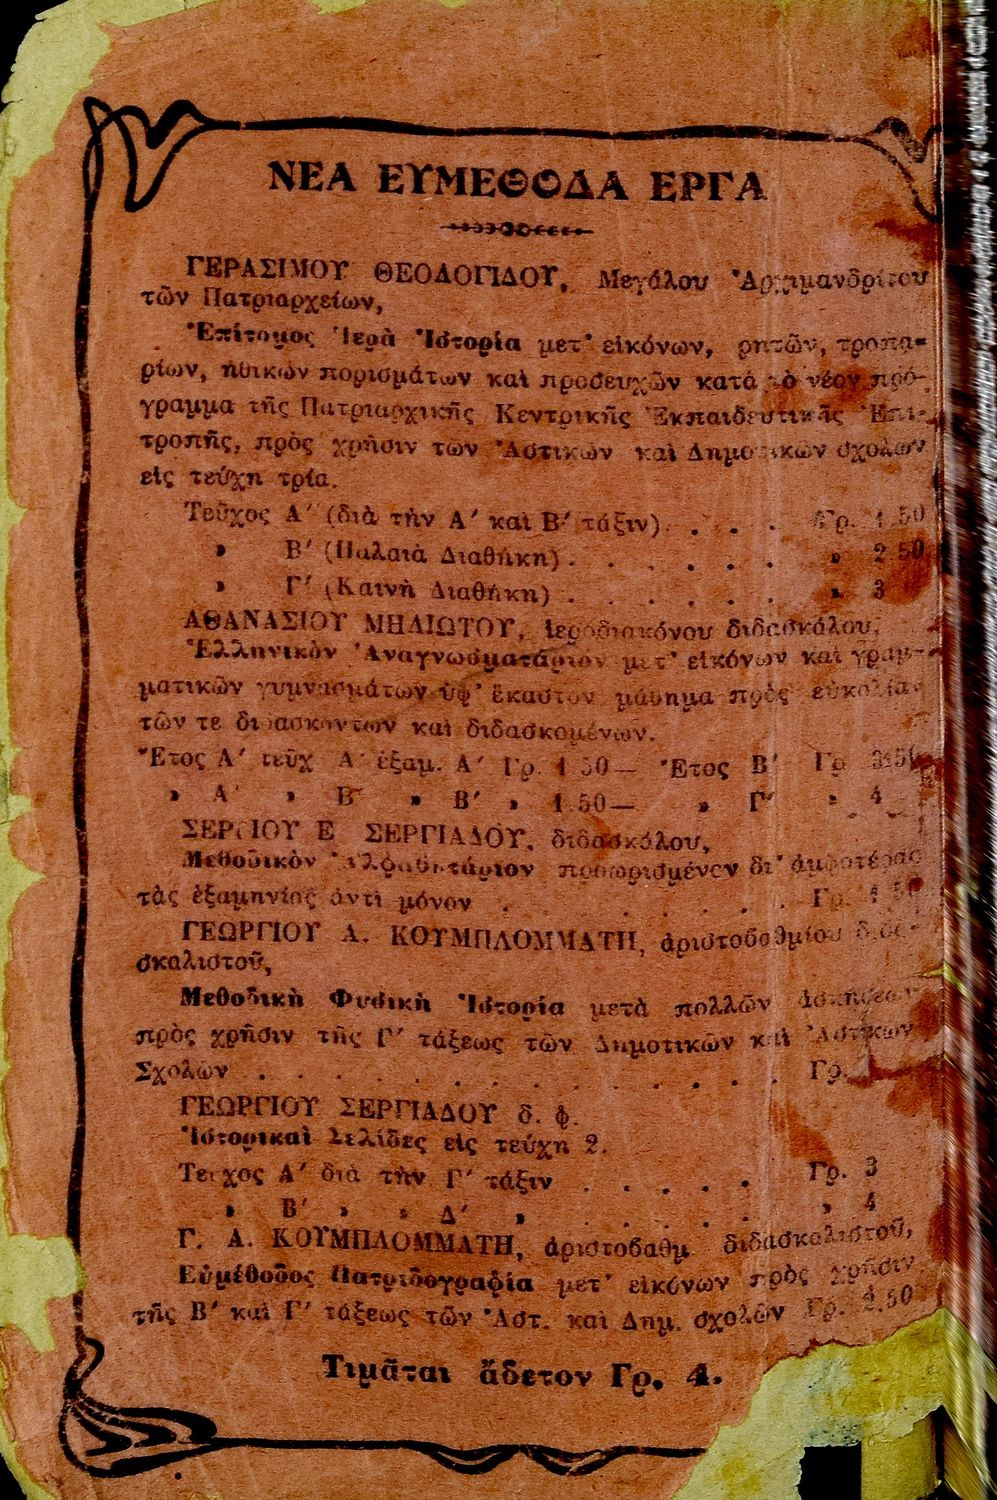 ΝΕΑ ΕΥΜΕΘΟΔΑ ΕΡΓΑ
ΓΕΡΑΣΙΜΟΥ ΘΕΟΛΟΓΙΔΟΥ, Μεγάλου Ἀρχιμανδρίτου
τῶν Πατριαρχείων,
Ἐπίτομος Ἱερὰ Ἱστορία μετ' εἰκόνων, ρητῶν, τροπα-
ρίων, ἠθικῶν πορισμάτων καὶ προσευχῶν κατὰ τὸ νέον πρό-
γραμμα τῆς Πατριαρχικῆς Κεντρικῆς Ἐκπαιδευτικῆς Ἐπι-
τροπῆς, πρὸς χρῆσιν τῶν Ἀστικῶν καὶ Δημοτικῶν σχολῶν
εἰς τεύχη τρία.
Τεῦχος Α′ (διὰ τὴν Α′ καὶ Β′ τάξιν) . . . Γρ. 1.50
» Β′ (Παλαιὰ Διαθήκη) . . . . . . » 2 50
» Γ′ (Καινὴ Διαθήκη) . . . . . . » 3
ΑΘΑΝΑΣΙΟΥ ΜΗΛΙΩΤΟΥ, ἱεροδιακόνου διδασκάλου,
Ἑλληνικὸν Ἀναγνωσματάριον μετ' εἰκόνων καὶ γραμ-
ματικῶν γυμνασμάτων ὑφ' ἕκαστον μάθημα πρὸς εὐκολίαν
τῶν τε διδασκόντων καὶ διδασκομένων.
Ἔτος Α′ τεῦχ Α′ ἑξαμ. Α′ Γρ. 1 50— Ἔτος Β′ Γρ 3.50
» Α′ » Β′ » Β′ » 1.50— » Γ′ » 4
ΣΕΡΓΙΟΥ Ε ΣΕΡΓΙΑΔΟΥ, διδασκάλου,
Μεθοδικὸν Ἀλφαβητάριον προωρισμένον δι' ἀμφοτέρας
τὰς ἑξαμηνίας ἀντὶ μόνον . . . . . . Γρ. 1 50
ΓΕΩΡΓΙΟΥ Α. ΚΟΥΜΠΛΟΜΜΑΤΗ, ἀριστοβαθμίου διδα-
σκαλιστοῦ,
Μεθοδικὴ Φυσικὴ Ἱστορία μετὰ πολλῶν ἀσκήσεων
πρὸς χρῆσιν τῆς Γ′ τάξεως τῶν Δημοτικῶν καὶ Ἀστικῶν
Σχολῶν . . . . . . . . . . . . Γρ.
ΓΕΩΡΓΙΟΥ ΣΕΡΓΙΑΔΟΥ δ. φ.
Ἱστορικαὶ Σελίδες εἰς τεύχη 2.
Τεῦχος Α′ διὰ τὴν Γ′ τάξιν . . . . . Γρ. 3
» Β′ » » Δ′ » . . . . . » 4
Γ. Α. ΚΟΥΜΠΛΟΜΜΑΤΗ, ἀριστοβαθμ διδασκαλιστοῦ,
Εὐμέθοδος Πατριδογραφία μετ' εἰκόνων πρὸς χρῆσιν
τῆς Β′ καὶ Γ′ τάξεως τῶν Ἀστ. καὶ Δημ. σχολῶν Γρ. 2.50
Τιμᾶται ἄδετον Γρ. 4.